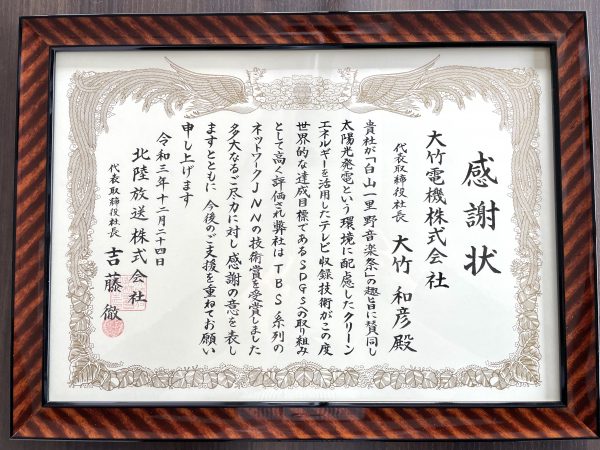 感謝状
大竹電機株式会社
代表取締役社長 大竹 和彦 殿
貴社が「白山一里野音楽祭」の趣旨に賛同し
太陽光発電という環境に配慮したクリーン
エネルギーを活用したテレビ収録技術がこの度
世界的な達成目標であるSDGsへの取り組み
として高く評価され弊社はTBS系列の
ネットワークJNNの技術賞を受賞しました
多大なるご尽力に対し感謝の意を表し
ますとともに 今後のご支援を重ねてお願い
申し上げます
令和三年十二月二十四日
北陸放送株式会社
代表取締役社長 吉藤 徹